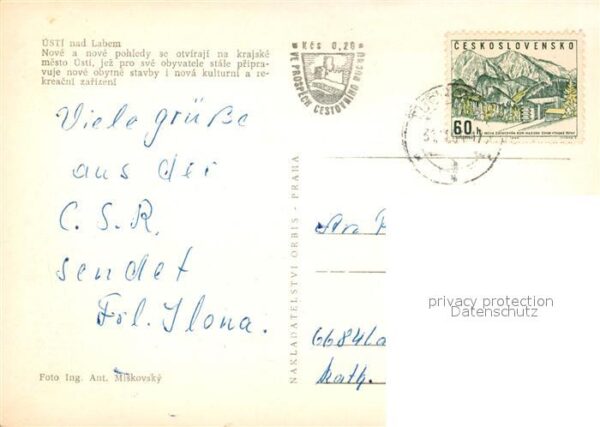 ÚSTÍ nad Labem
Nové a nové pohledy se otvírají na krajské
město Ústí, jež pro své obyvatele stále připra-
vuje nové obytné stavby i nová kulturní a re-
kreační zařízení
Kčs 0,20
VE PROSPĚCH CESTOVNÍHO RUCHU
ČESKOSLOVENSKO
60 h
Viele grüße
aus der
C. S. R.
sendet
Frl. Ilona.
NAKLADATELSTVÍ ORBIS - PRAHA
privacy protection
Datenschutz
6684
Foto Ing. Ant. Miškovský